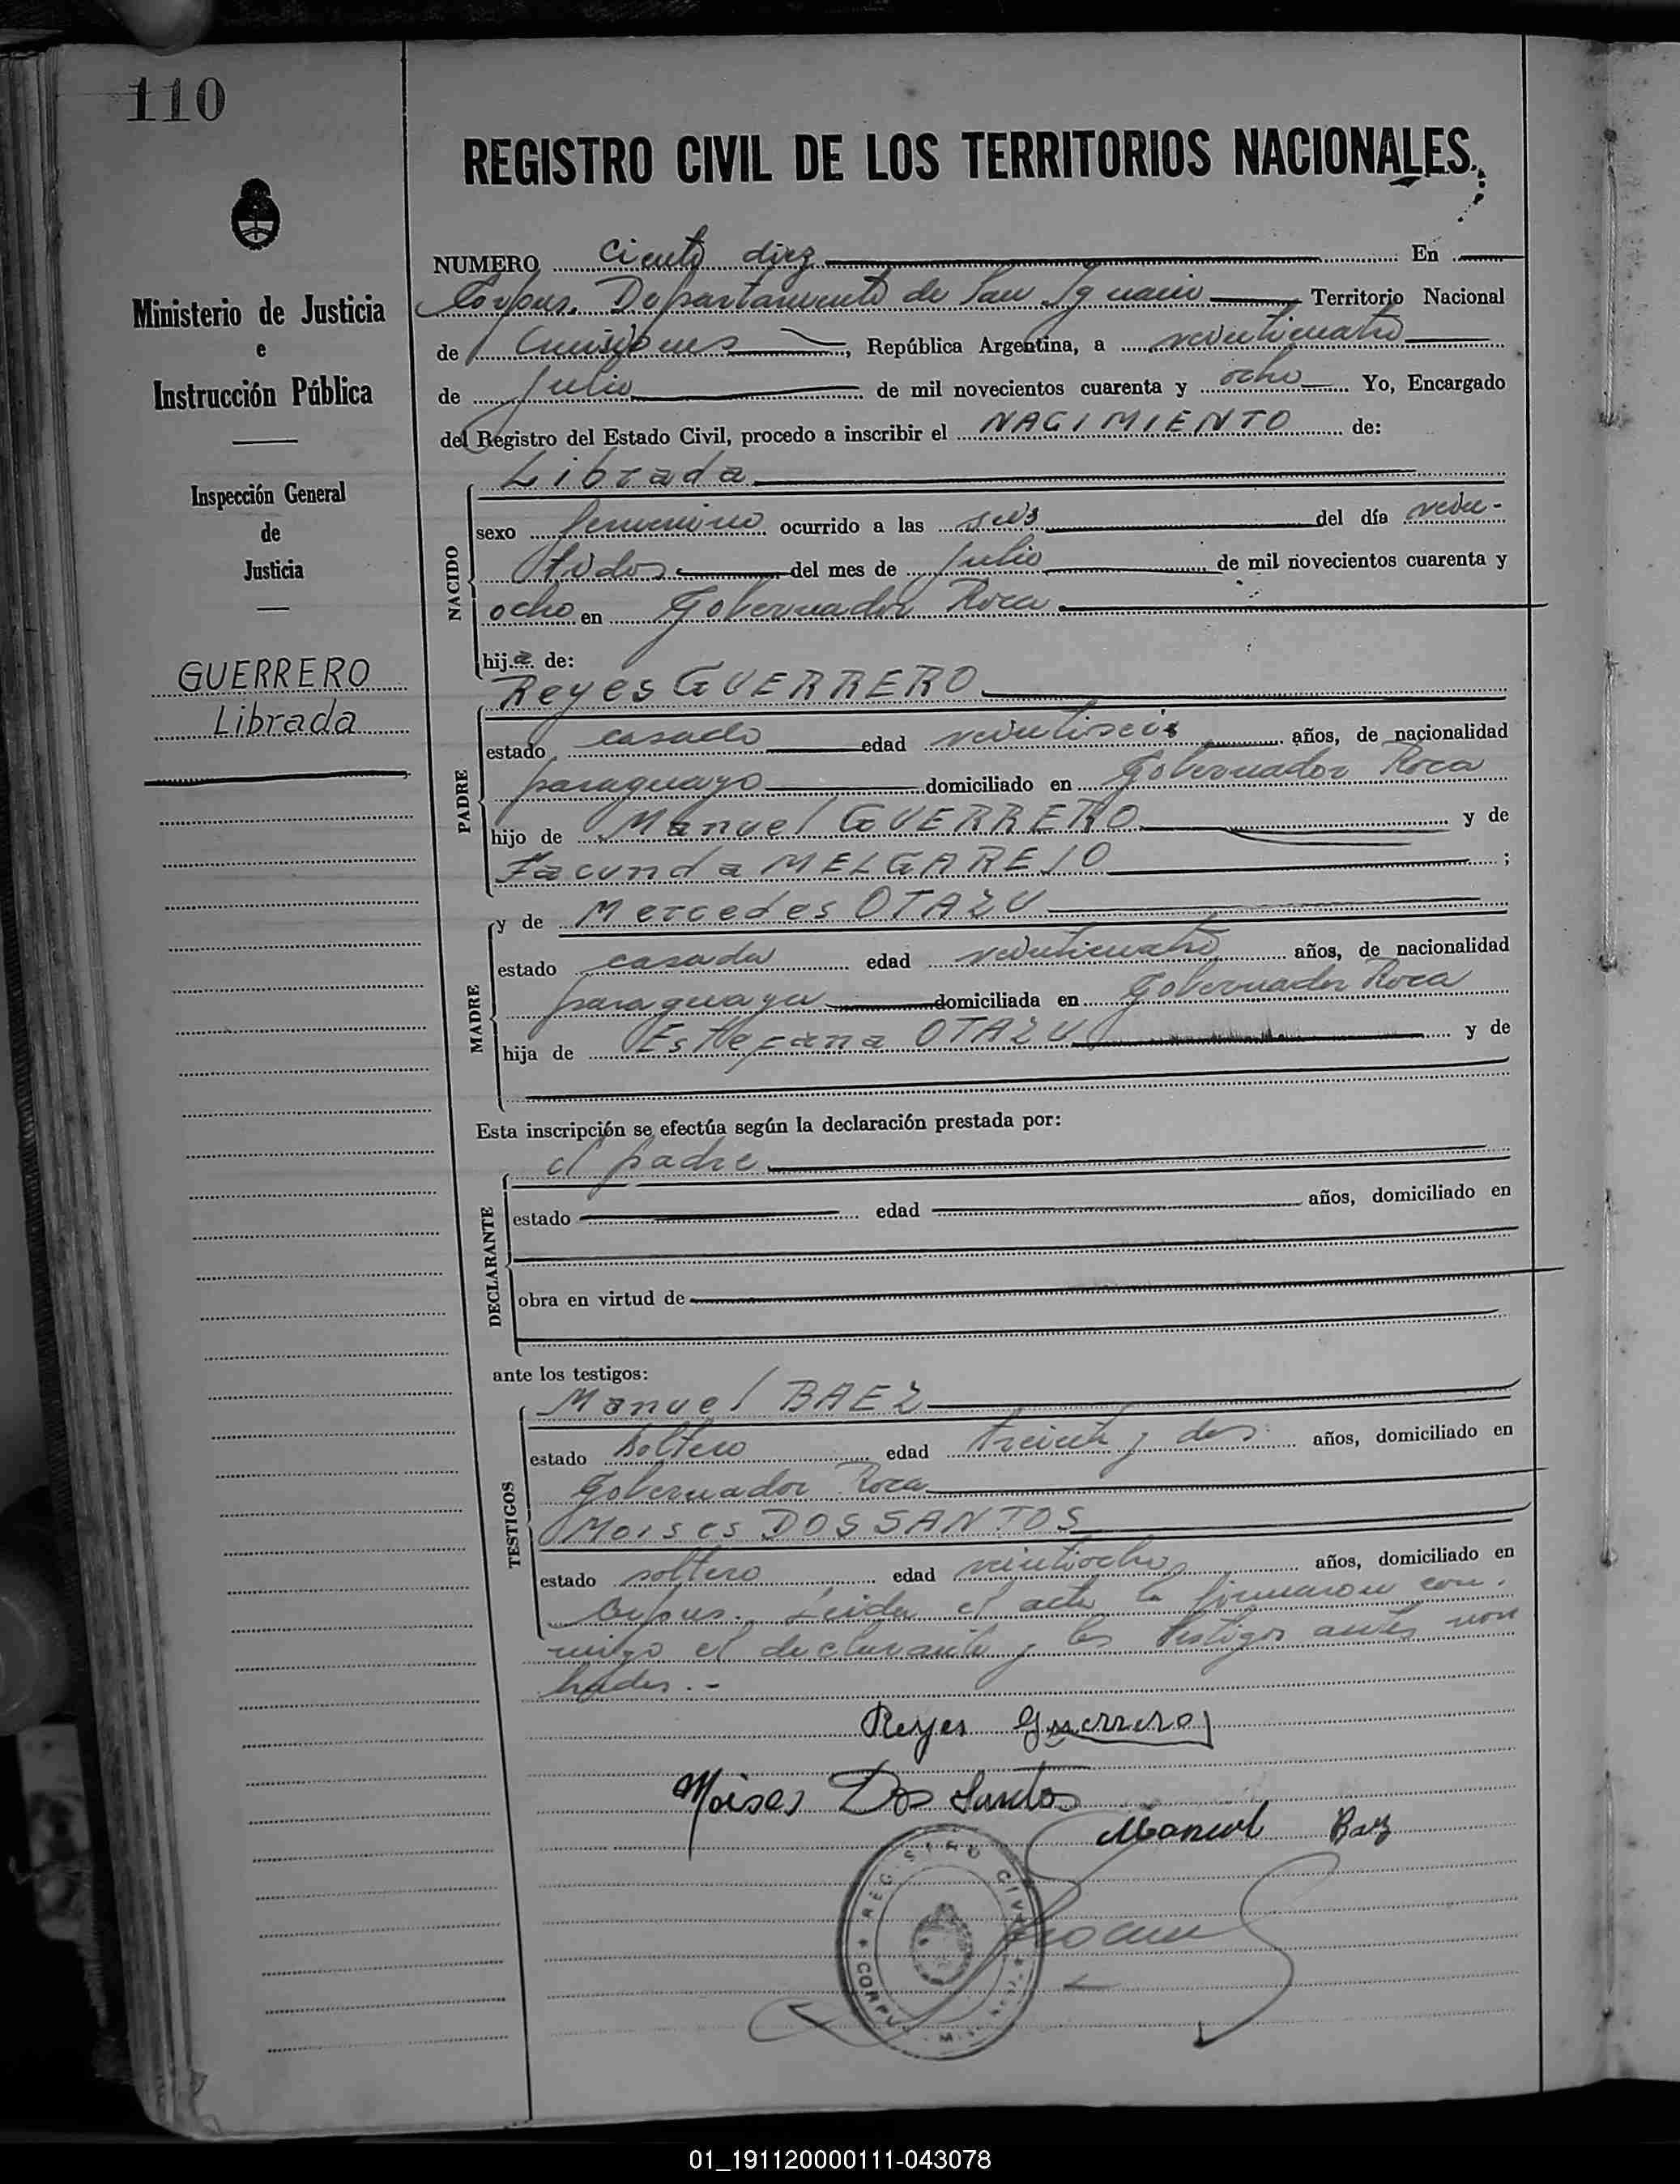 110
REGISTRO CIVIL DE LOS TERRITORIOS NACIONALES
NUMERO Ciento diez En
Corpus, Departamento de San Ignacio Territorio Nacional
de Misiones, República Argentina, a veinticuatro
de Julio de mil novecientos cuarenta y ocho Yo, Encargado
del Registro del Estado Civil, procedo a inscribir el NACIMIENTO de:
Ministerio de Justicia
e
Instrucción Pública
Inspección General
de
Justicia
GUERRERO
Librada
NACIDO
Librada
sexo femenino ocurrido a las seis del día vein-
tidos del mes de Julio de mil novecientos cuarenta y
ocho en Gobernador Roca
hija de:
PADRE
Reyes GUERRERO
estado casado edad veintiseis años, de nacionalidad
paraguayo domiciliado en Gobernador Roca
hijo de Manuel GUERRERO y de
Facunda MELGAREJO ;
MADRE
y de Mercedes OTAZU
estado casada edad veinticuatro años, de nacionalidad
paraguaya domiciliada en Gobernador Roca
hija de OTAZU y de
Esta inscripción se efectúa según la declaración prestada por:
DECLARANTE
el padre
estado edad años, domiciliado en
obra en virtud de
ante los testigos:
TESTIGOS
Manuel BAEZ
estado soltero edad treinta y dos años, domiciliado en
Gobernador Roca
Moises DOS SANTOS
estado soltero edad veintiocho años, domiciliado en
Corpus. Leida el acta la firmaron con-
migo el declarante y los testigos antes nom
brados.-
Reyes Guerrero
Moises Dos Santos
Manuel Baez
REGISTRO CIVIL
CORPUS
01_191120000111-043078